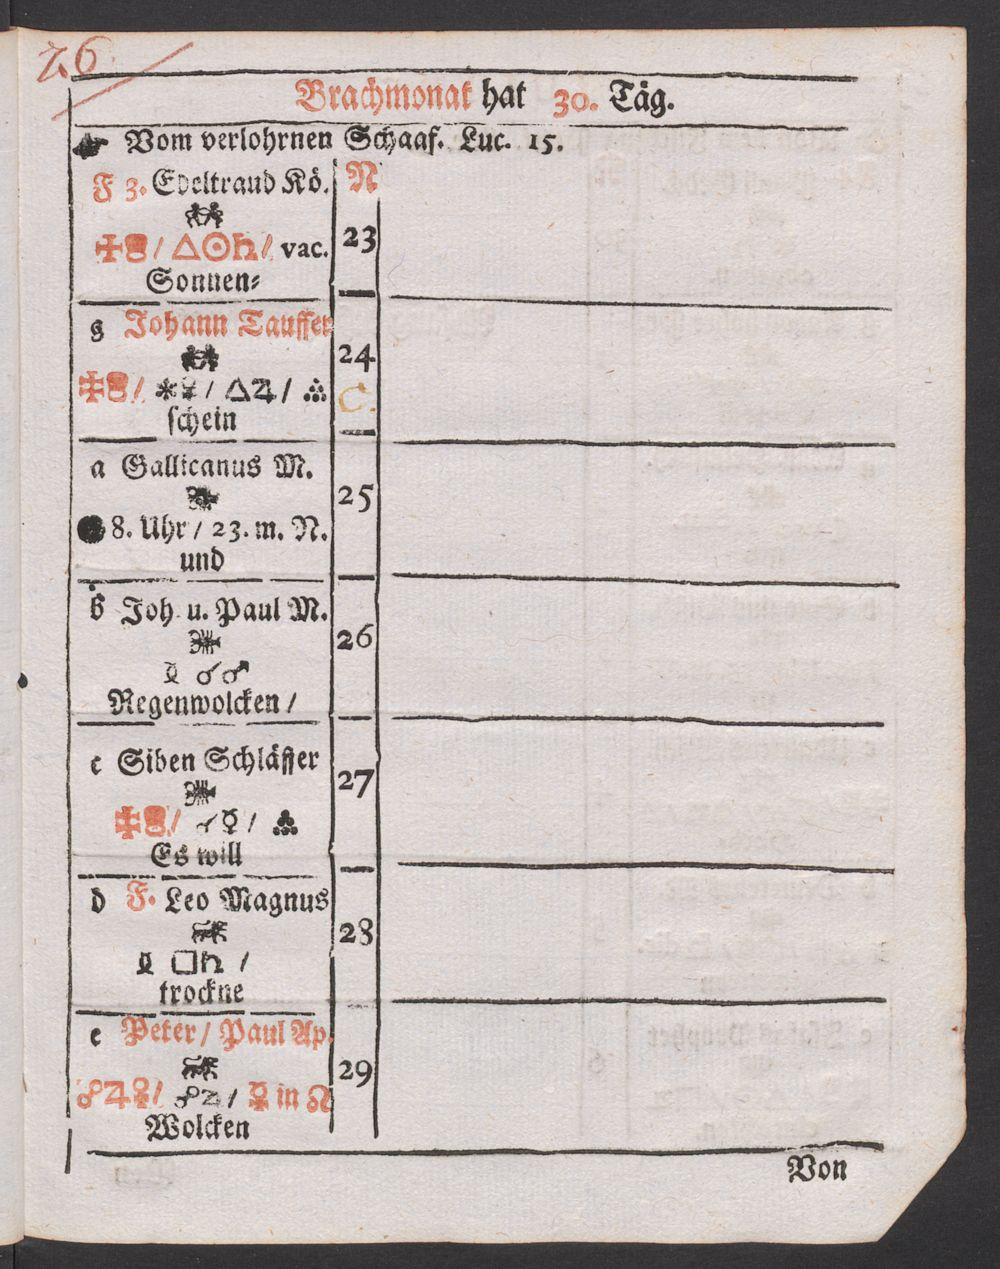 26
Brachmonat hat 30. Täg.
☛ Vom verlohrnen Schaaf. Luc. 15.
F 3. Edeltraud Kö. N
△☉♄ / vac. 23
Sonnen=
g Johann Tauffer
24
/ △♃ / C.
schein
a Gallicanus M.
25
● 8. Uhr / 23. m. N.
und
b Joh. u. Paul M.
26
☌♂
Regenwolcken /
c Siben Schläffer
27
☌☿ /
Es will
d F. Leo Magnus
28
□♄ /
trockne
e Peter / Paul Ap.
29
☍♃♀ / ☍♃ / ☿ in ☊
Wolcken
Von